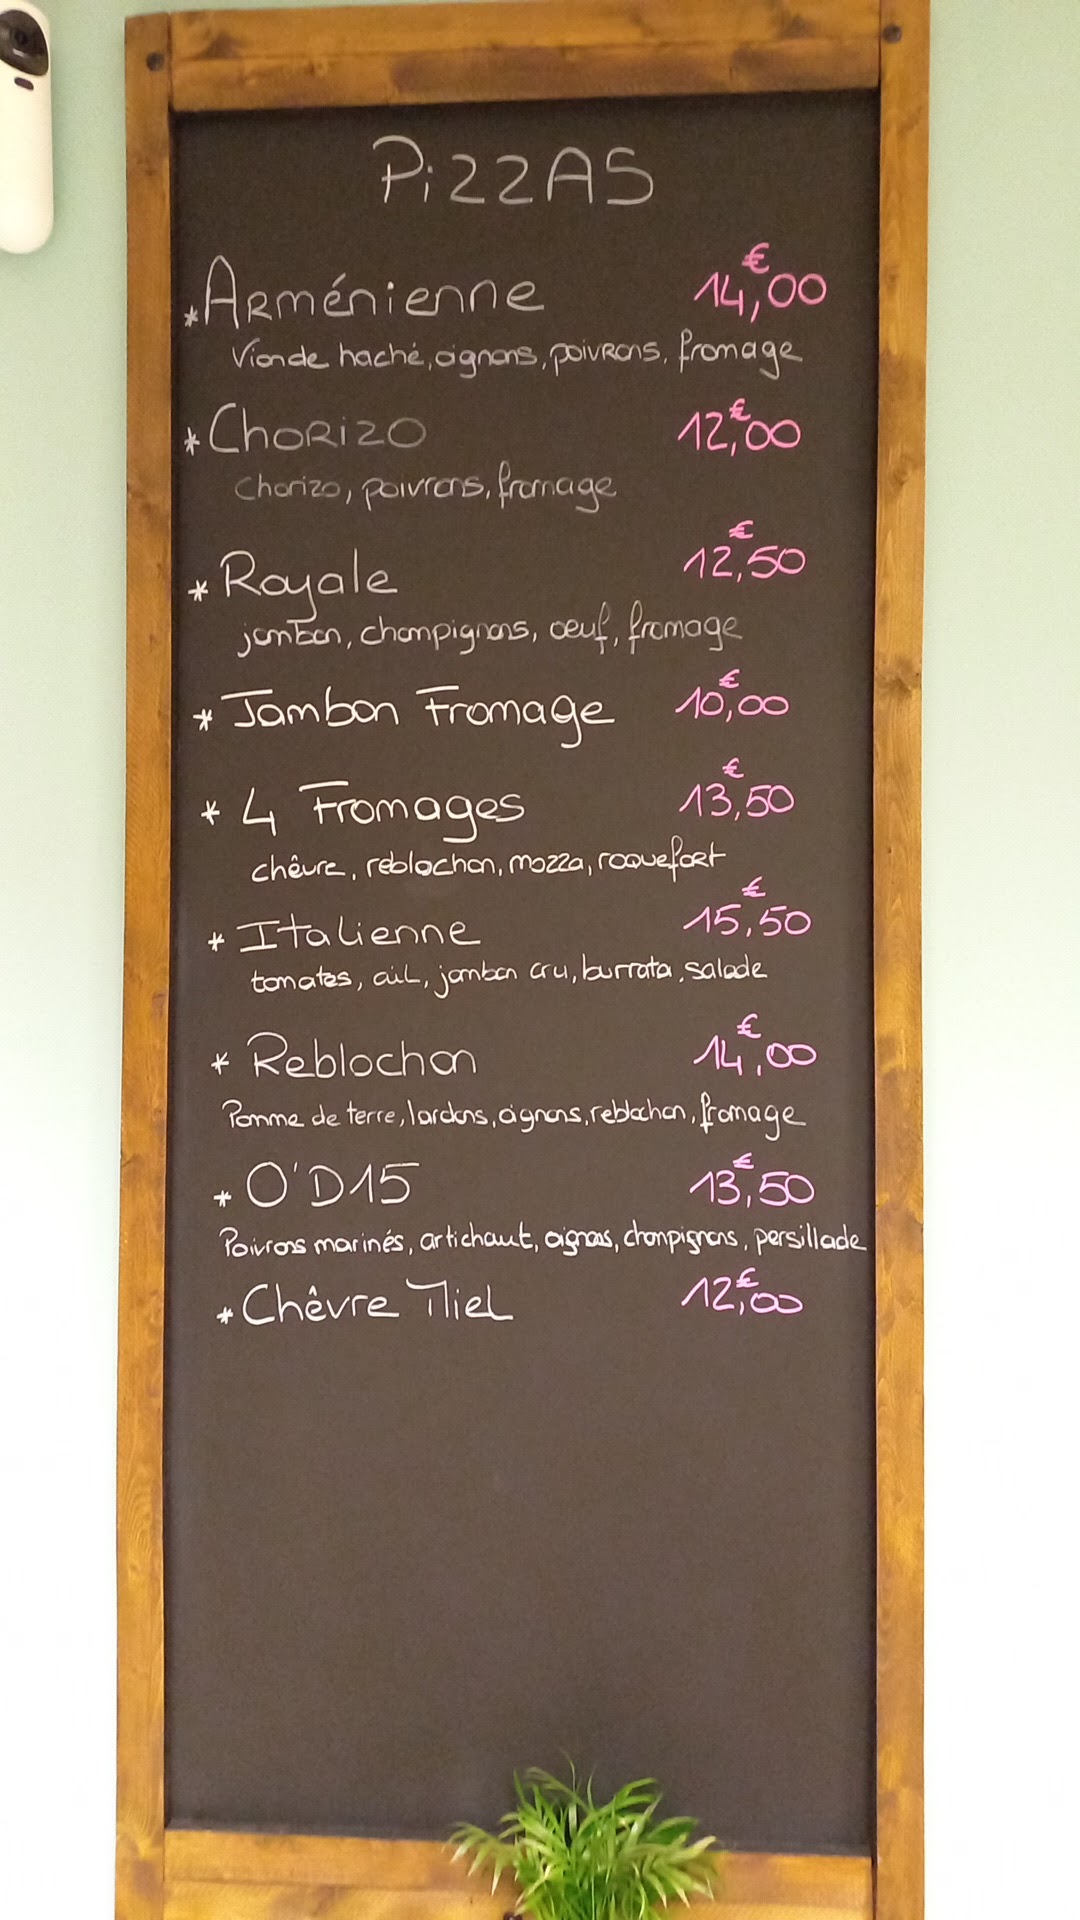 PiZZAS
* Arménienne 14,00 €
Viande haché, oignons, poivrons, fromage
* Chorizo 12,00 €
Chorizo, poivrons, fromage
* Royale 12,50 €
jambon, champignons, oeuf, fromage
* Jambon Fromage 10,00 €
* 4 Fromages 13,50 €
chêvre, reblochon, mozza, roquefort
* Italienne 15,50 €
tomates, ail, jambon cru, burrata, salade
* Reblochon 14,00 €
Pomme de terre, lardons, oignons, reblochon, fromage
* O'D15 13,50 €
Poivrons marinés, artichaut, oignons, champignons, persillade
* Chêvre Miel 12,00 €